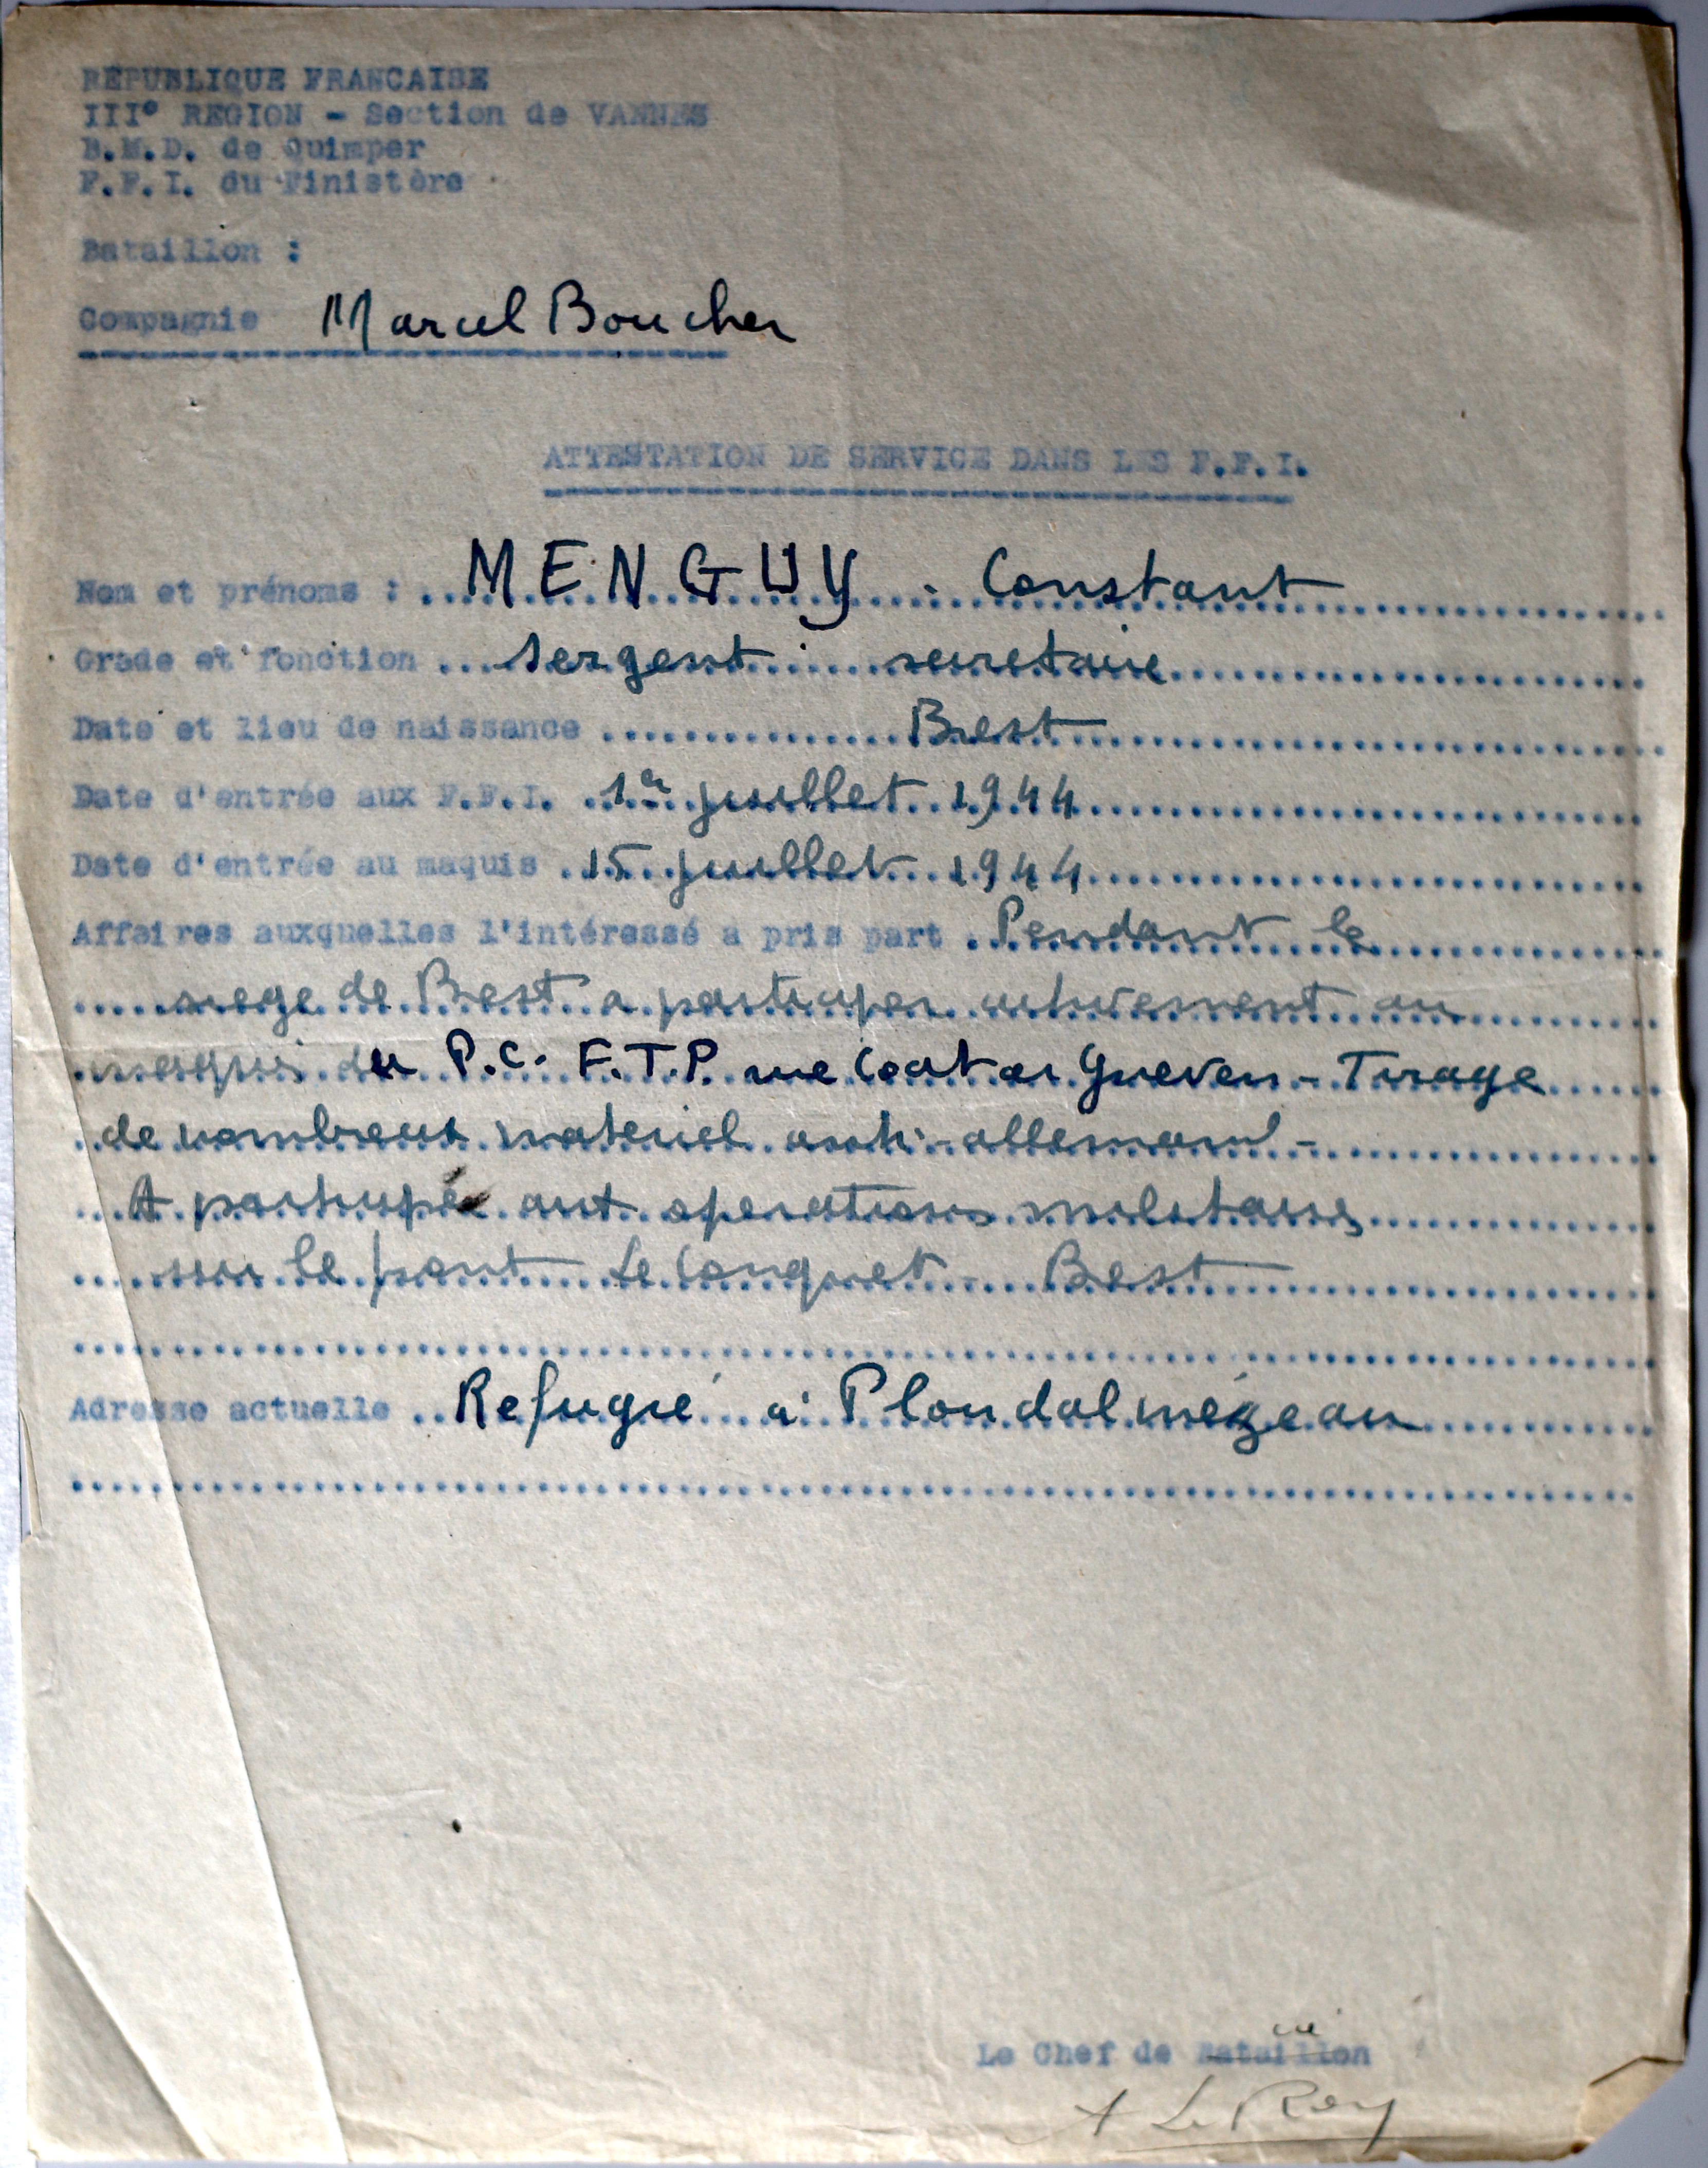 RÉPUBLIQUE FRANCAISE
III° REGION - Section de VANNES
B.M.D. de Quimper
F.F.I. du Finistère
Bataillon :
Compagnie Marcel Boucher
ATTESTATION DE SERVICE DANS LES F.F.I.
Nom et prénoms : MENGUY - Constant
Grade et fonction Sergent secretaire
Date et lieu de naissance Brest
Date d'entrée aux F.F.I. 1er juillet 1944
Date d'entrée au maquis 15 juillet 1944
Affaires auxquelles l'intéressé a pris part Pendant le
siege de Brest a participer activement au
maquis du P.C. F.T.P. rue Coat ar Gueven - Tirage
de nombreux materiel anti-allemand -
A participé aux operations militaires
sur le front Le Conquet Brest
Adresse actuelle Refugié à Ploudalmézeau
Le Chef de Bataillon
A Le Roy